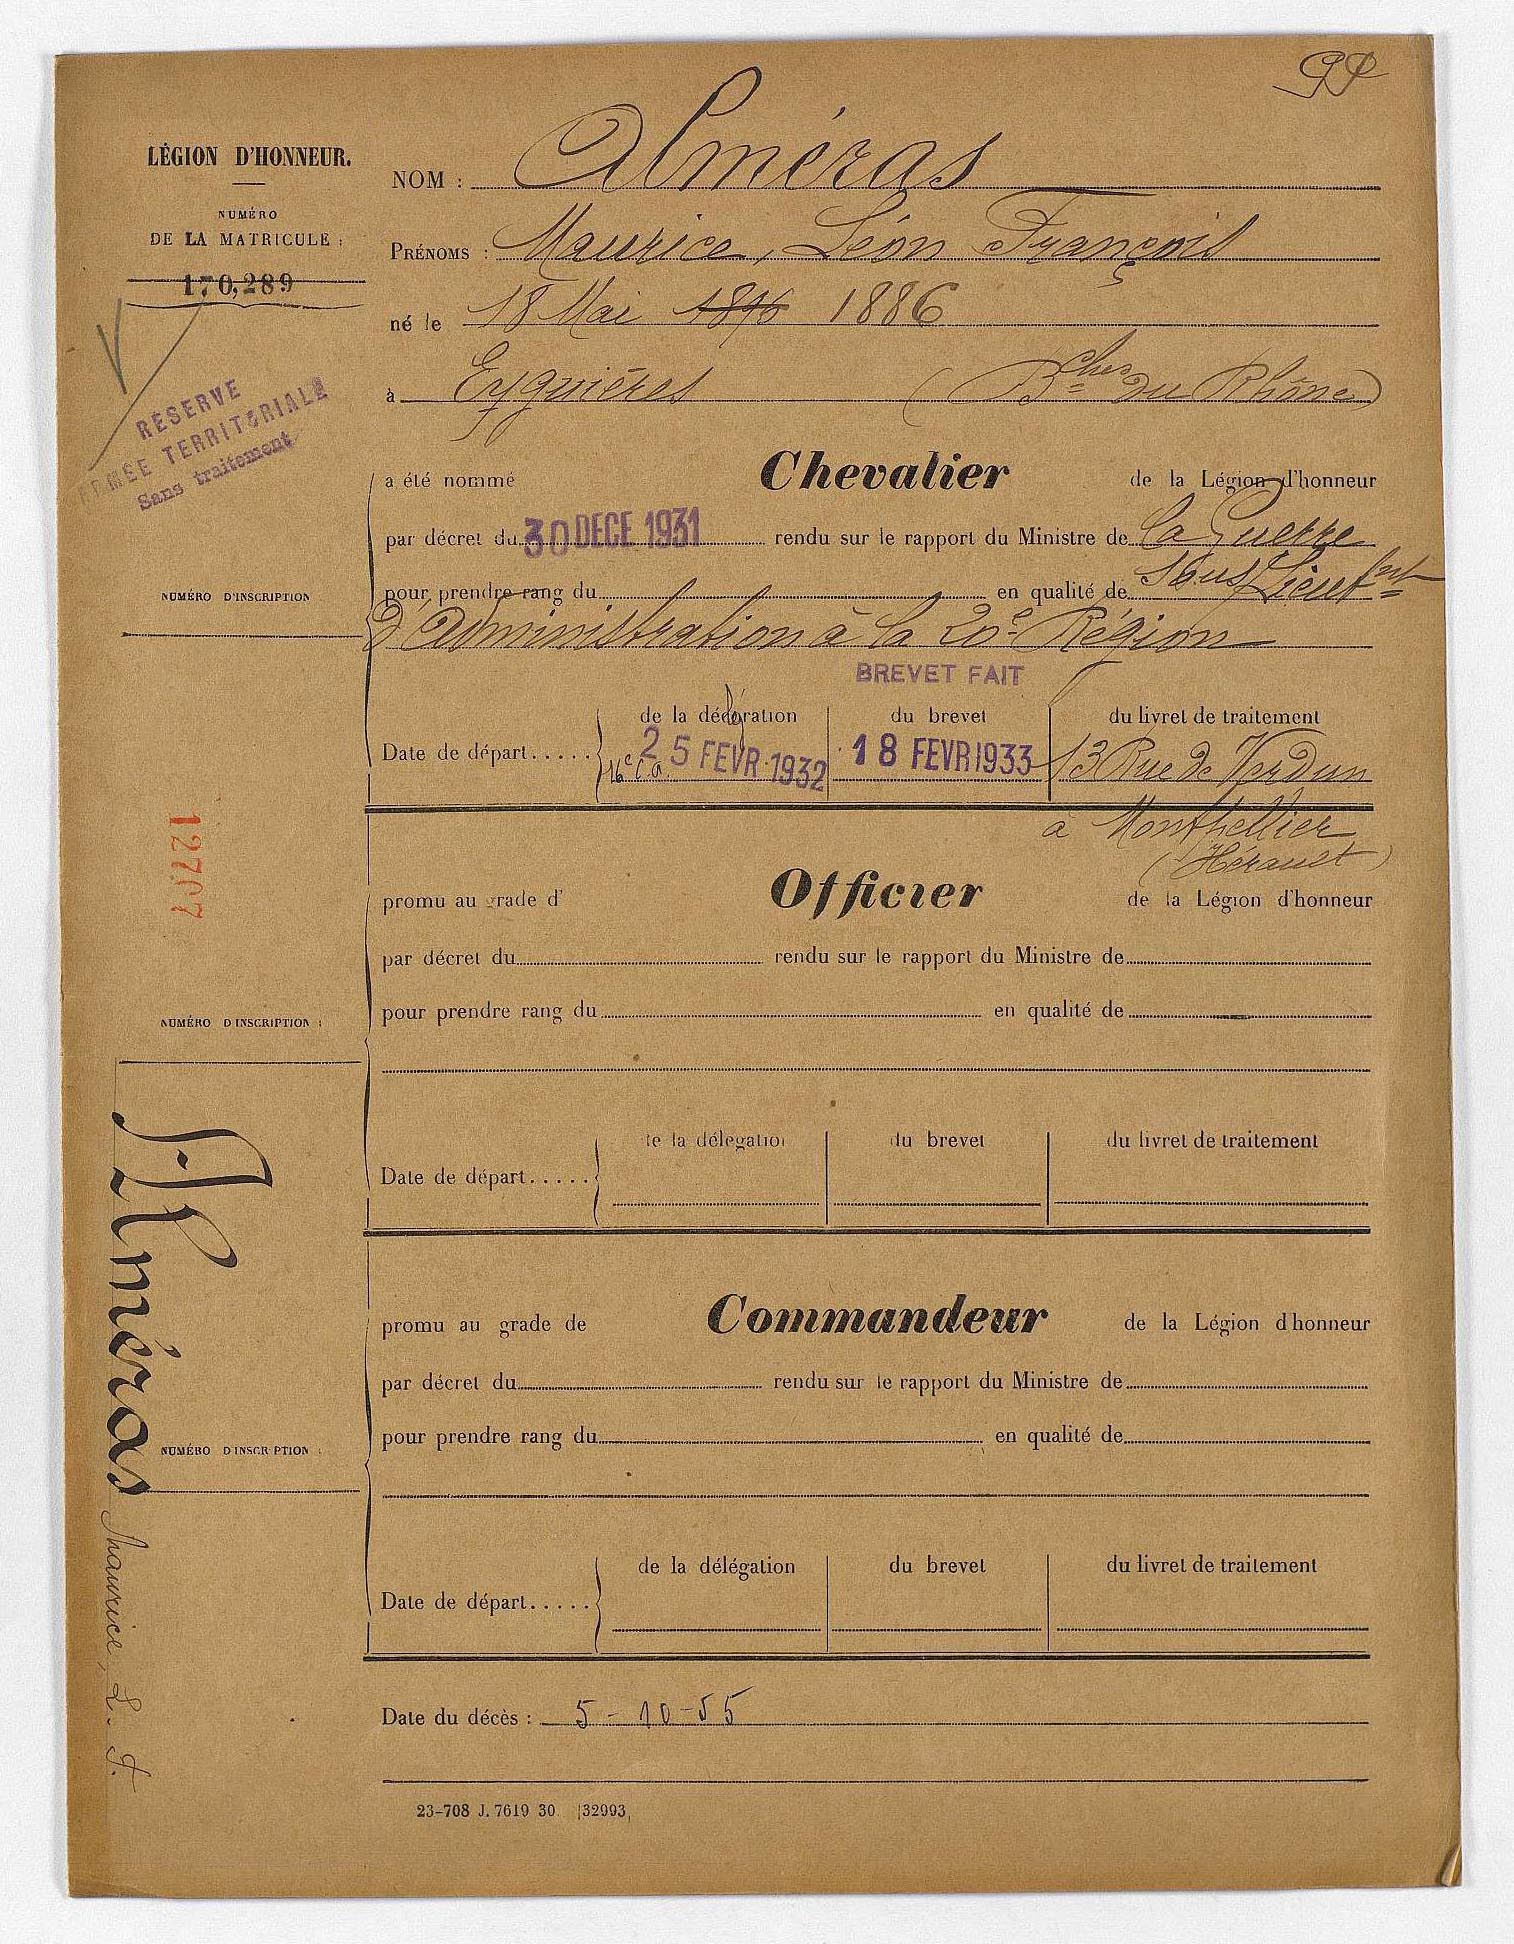 LÉGION D'HONNEUR.
NUMÉRO
DE LA MATRICULE :
170,289
RÉSERVE
ARMÉE TERRITORIALE
Sans traitement
NOM : Alméras
PRÉNOMS : Maurice, Léon François
né le 18 Mai 1896 1886
à Eyguières (Bches du Rhône)
a été nommé Chevalier de la Légion d'honneur
par décret du 30 DECE 1931 rendu sur le rapport du Ministre de la Guerre
NUMÉRO D'INSCRIPTION
pour prendre rang du en qualité de Sous Lieutnt
d'administration à la 20e Région
BREVET FAIT
de la délégation du brevet du livret de traitement
Date de départ..... 16e C.A. 25 FEVR 1932 18 FEVR 1933 13 Rue de Verdun
à Montpellier
(Hérault)
12707
promu au grade d' Officier de la Légion d'honneur
par décret du rendu sur le rapport du Ministre de
pour prendre rang du en qualité de
NUMÉRO D'INSCRIPTION :
de la délégation du brevet du livret de traitement
Date de départ.....
promu au grade de Commandeur de la Légion d'honneur
par décret du rendu sur le rapport du Ministre de
pour prendre rang du en qualité de
NUMÉRO D'INSCRIPTION :
de la délégation du brevet du livret de traitement
Date de départ.....
Alméras Maurice, L. F.
Date du décès : 5-10-55
23-708 J. 7619 30. [32993]